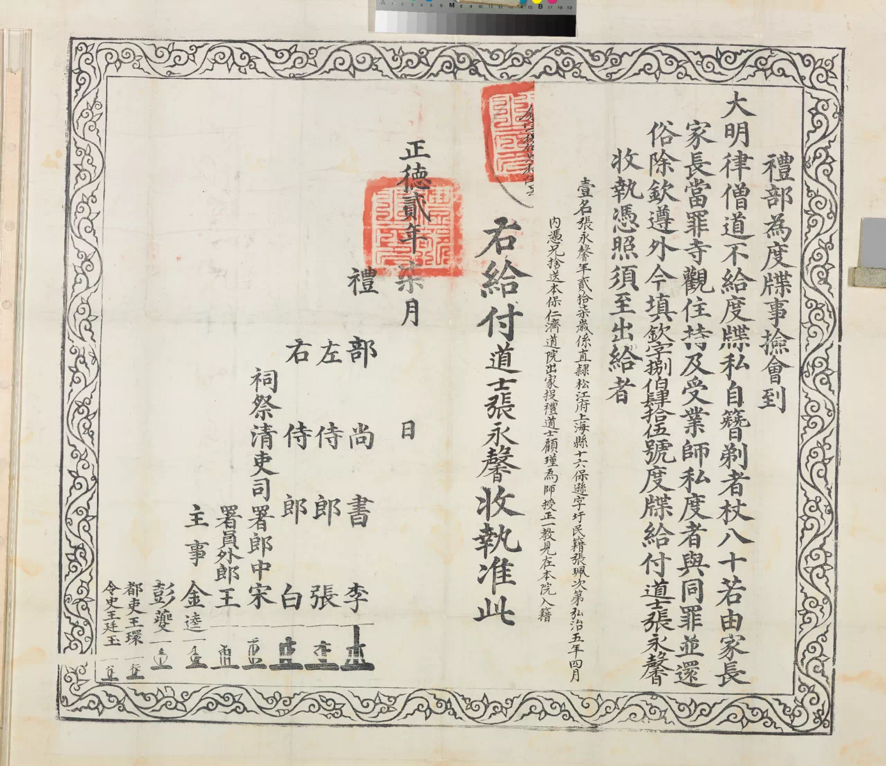 禮部為度牒事撿會到
大明律僧道不給度牒私自簪剃者杖八十若由家長
家長當罪寺觀住持及受業師私度者與同罪並還
俗除欽遵外今填欽字捌伯肆拾伍號度牒給付道士張永馨
收執憑照須至出給者
壹名張永馨年貳拾柒歲係直隸松江府上海縣十六保遜字圩民籍張珮次弟弘治五年四月
內憑兄捨送本保仁濟道院出家投禮道士顧瑾為師授正一教見在本院入籍
右給付道士張永馨收執准此
正德貳年柒月 日
禮部尚書李
左侍郎張
右侍郎白
祠祭清吏司署郎中宋
署員外郎王
主事金逵
彭夔
都吏王環
令史王廷玉